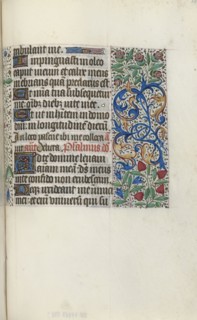 tribulant me.
Impinguasti in oleo
caput meum et calix meus
inebrians quam preclarus est
Et mia tua subsequetur
me oibz diebz vite mee
Et ut inhabitem in domo
dni in longitudinem dierum
In loco pascue ibi me collo
Psalmus
Ad te domine levavi
animam meam ds meus
in te confido non erubescam
Neqz irrideant me inimici
mei et eni universi qui su